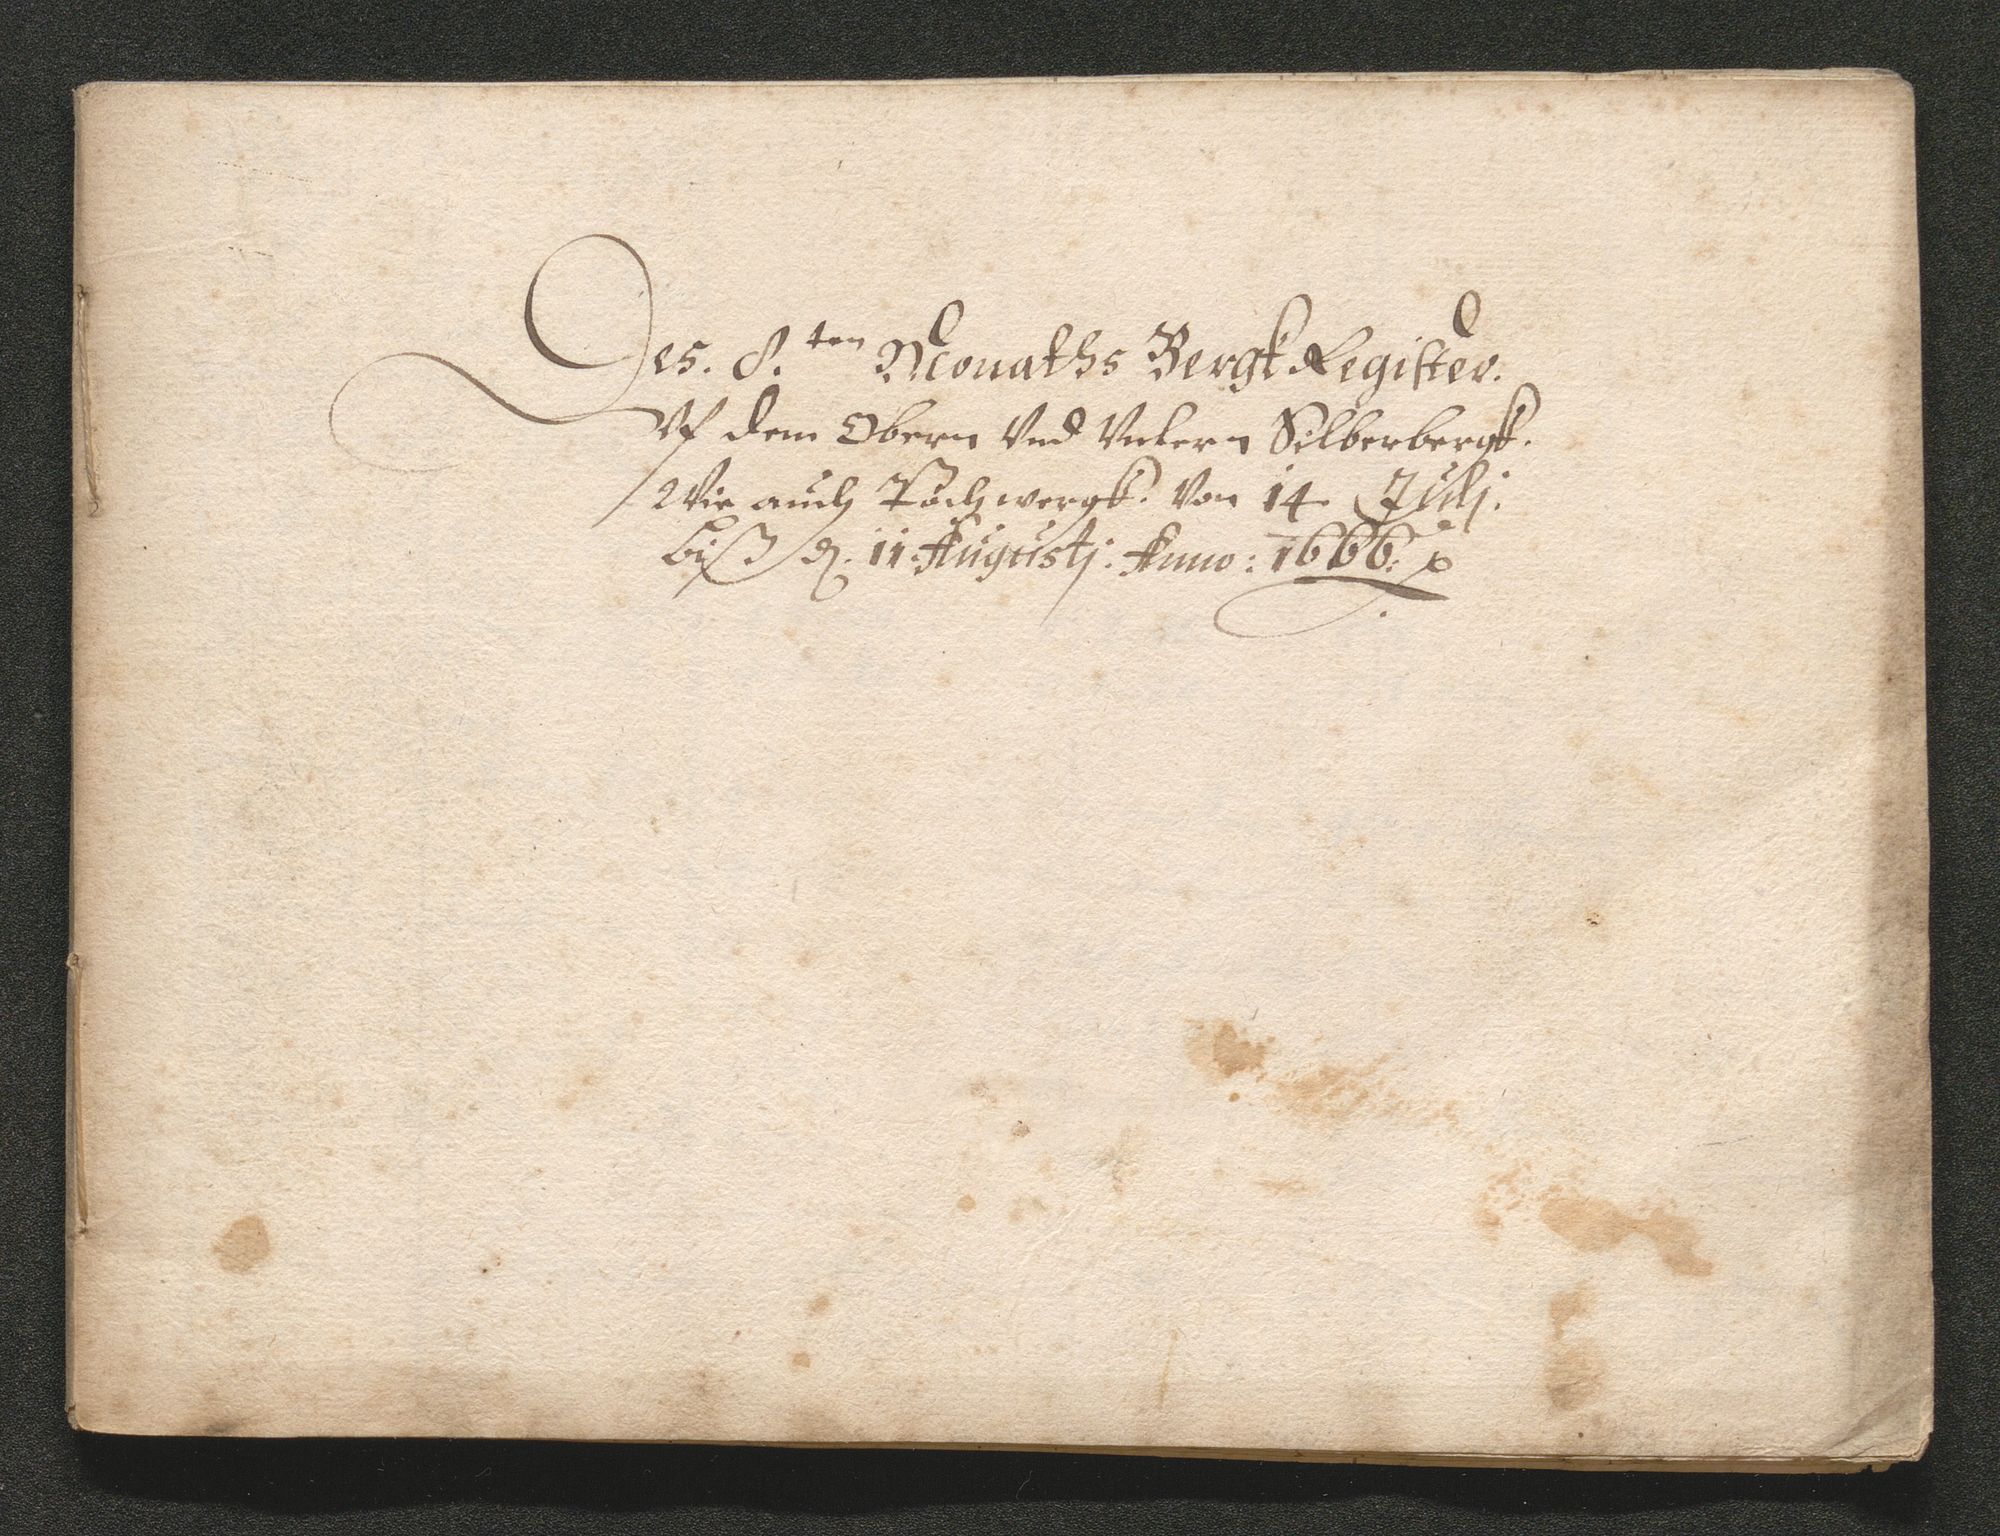 Des. 8.ten Monaths Bergk Register.
Vf dem Obern Vnd Vntern Silberbergk.
Wie auch Pöch wergk. Von 14 Julj.
biß d. 11. Augustj. Anno: 1666.